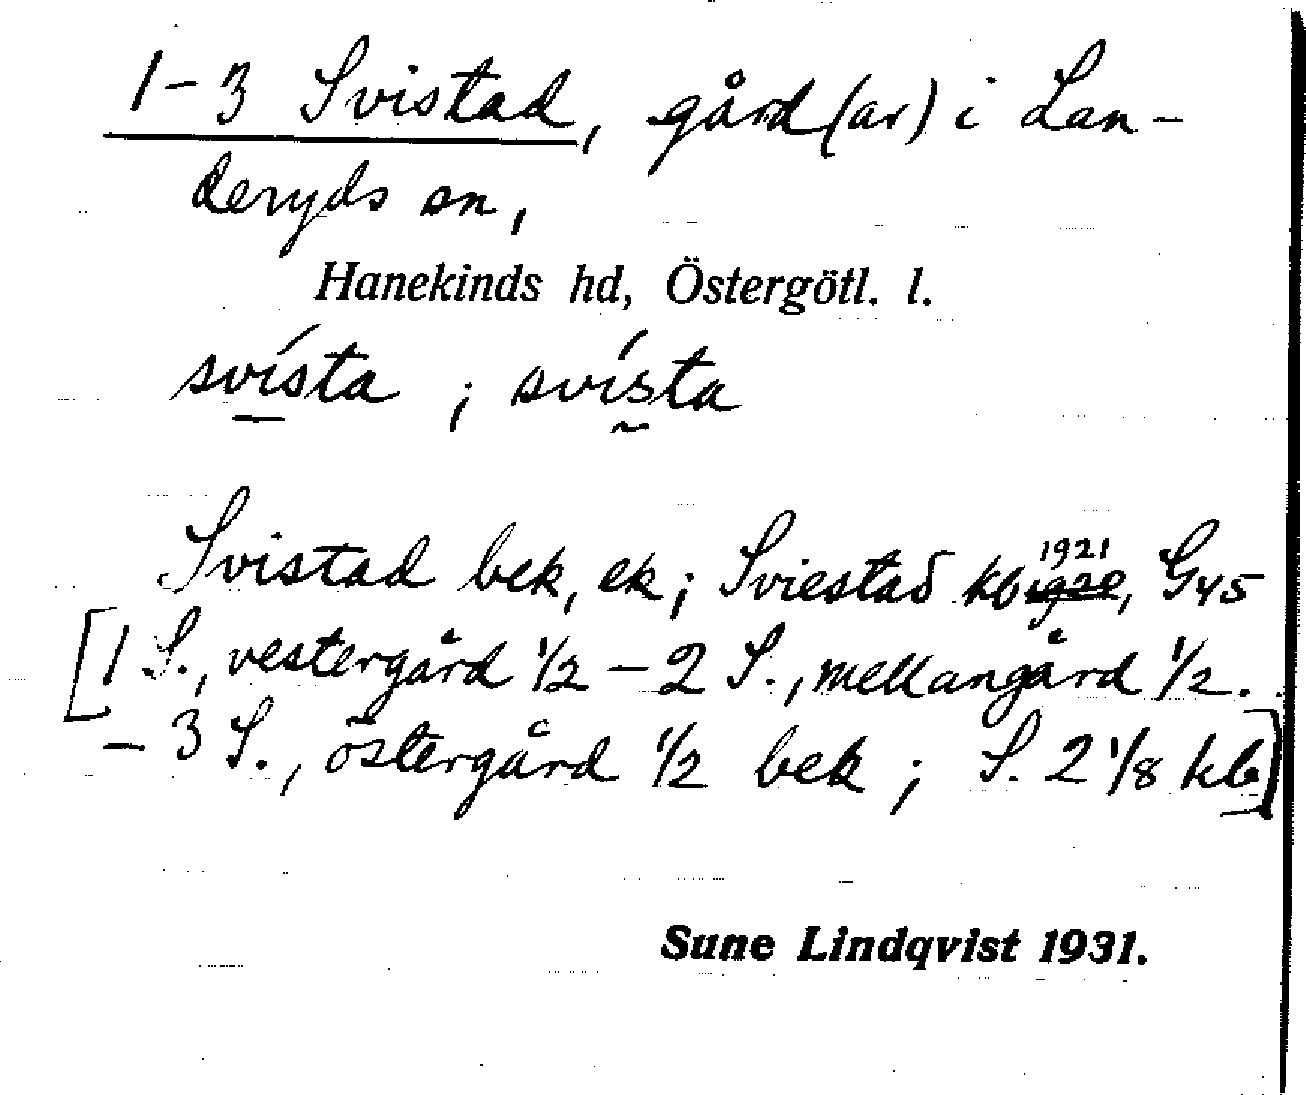 1–3 Svistad, gård(ar) i Lan-
deryds sn,
Hanekinds hd, Östergötl. l.
svísta ; svísta
Svistad bek, ek; Sviestad kb 1921 1920, G45
[1 S., vestergård 1/2 – 2 S., mellangård 1/2.
– 3 S., östergård 1/2 bek ; S. 2 1/8 kb]
Sune Lindqvist 1931.